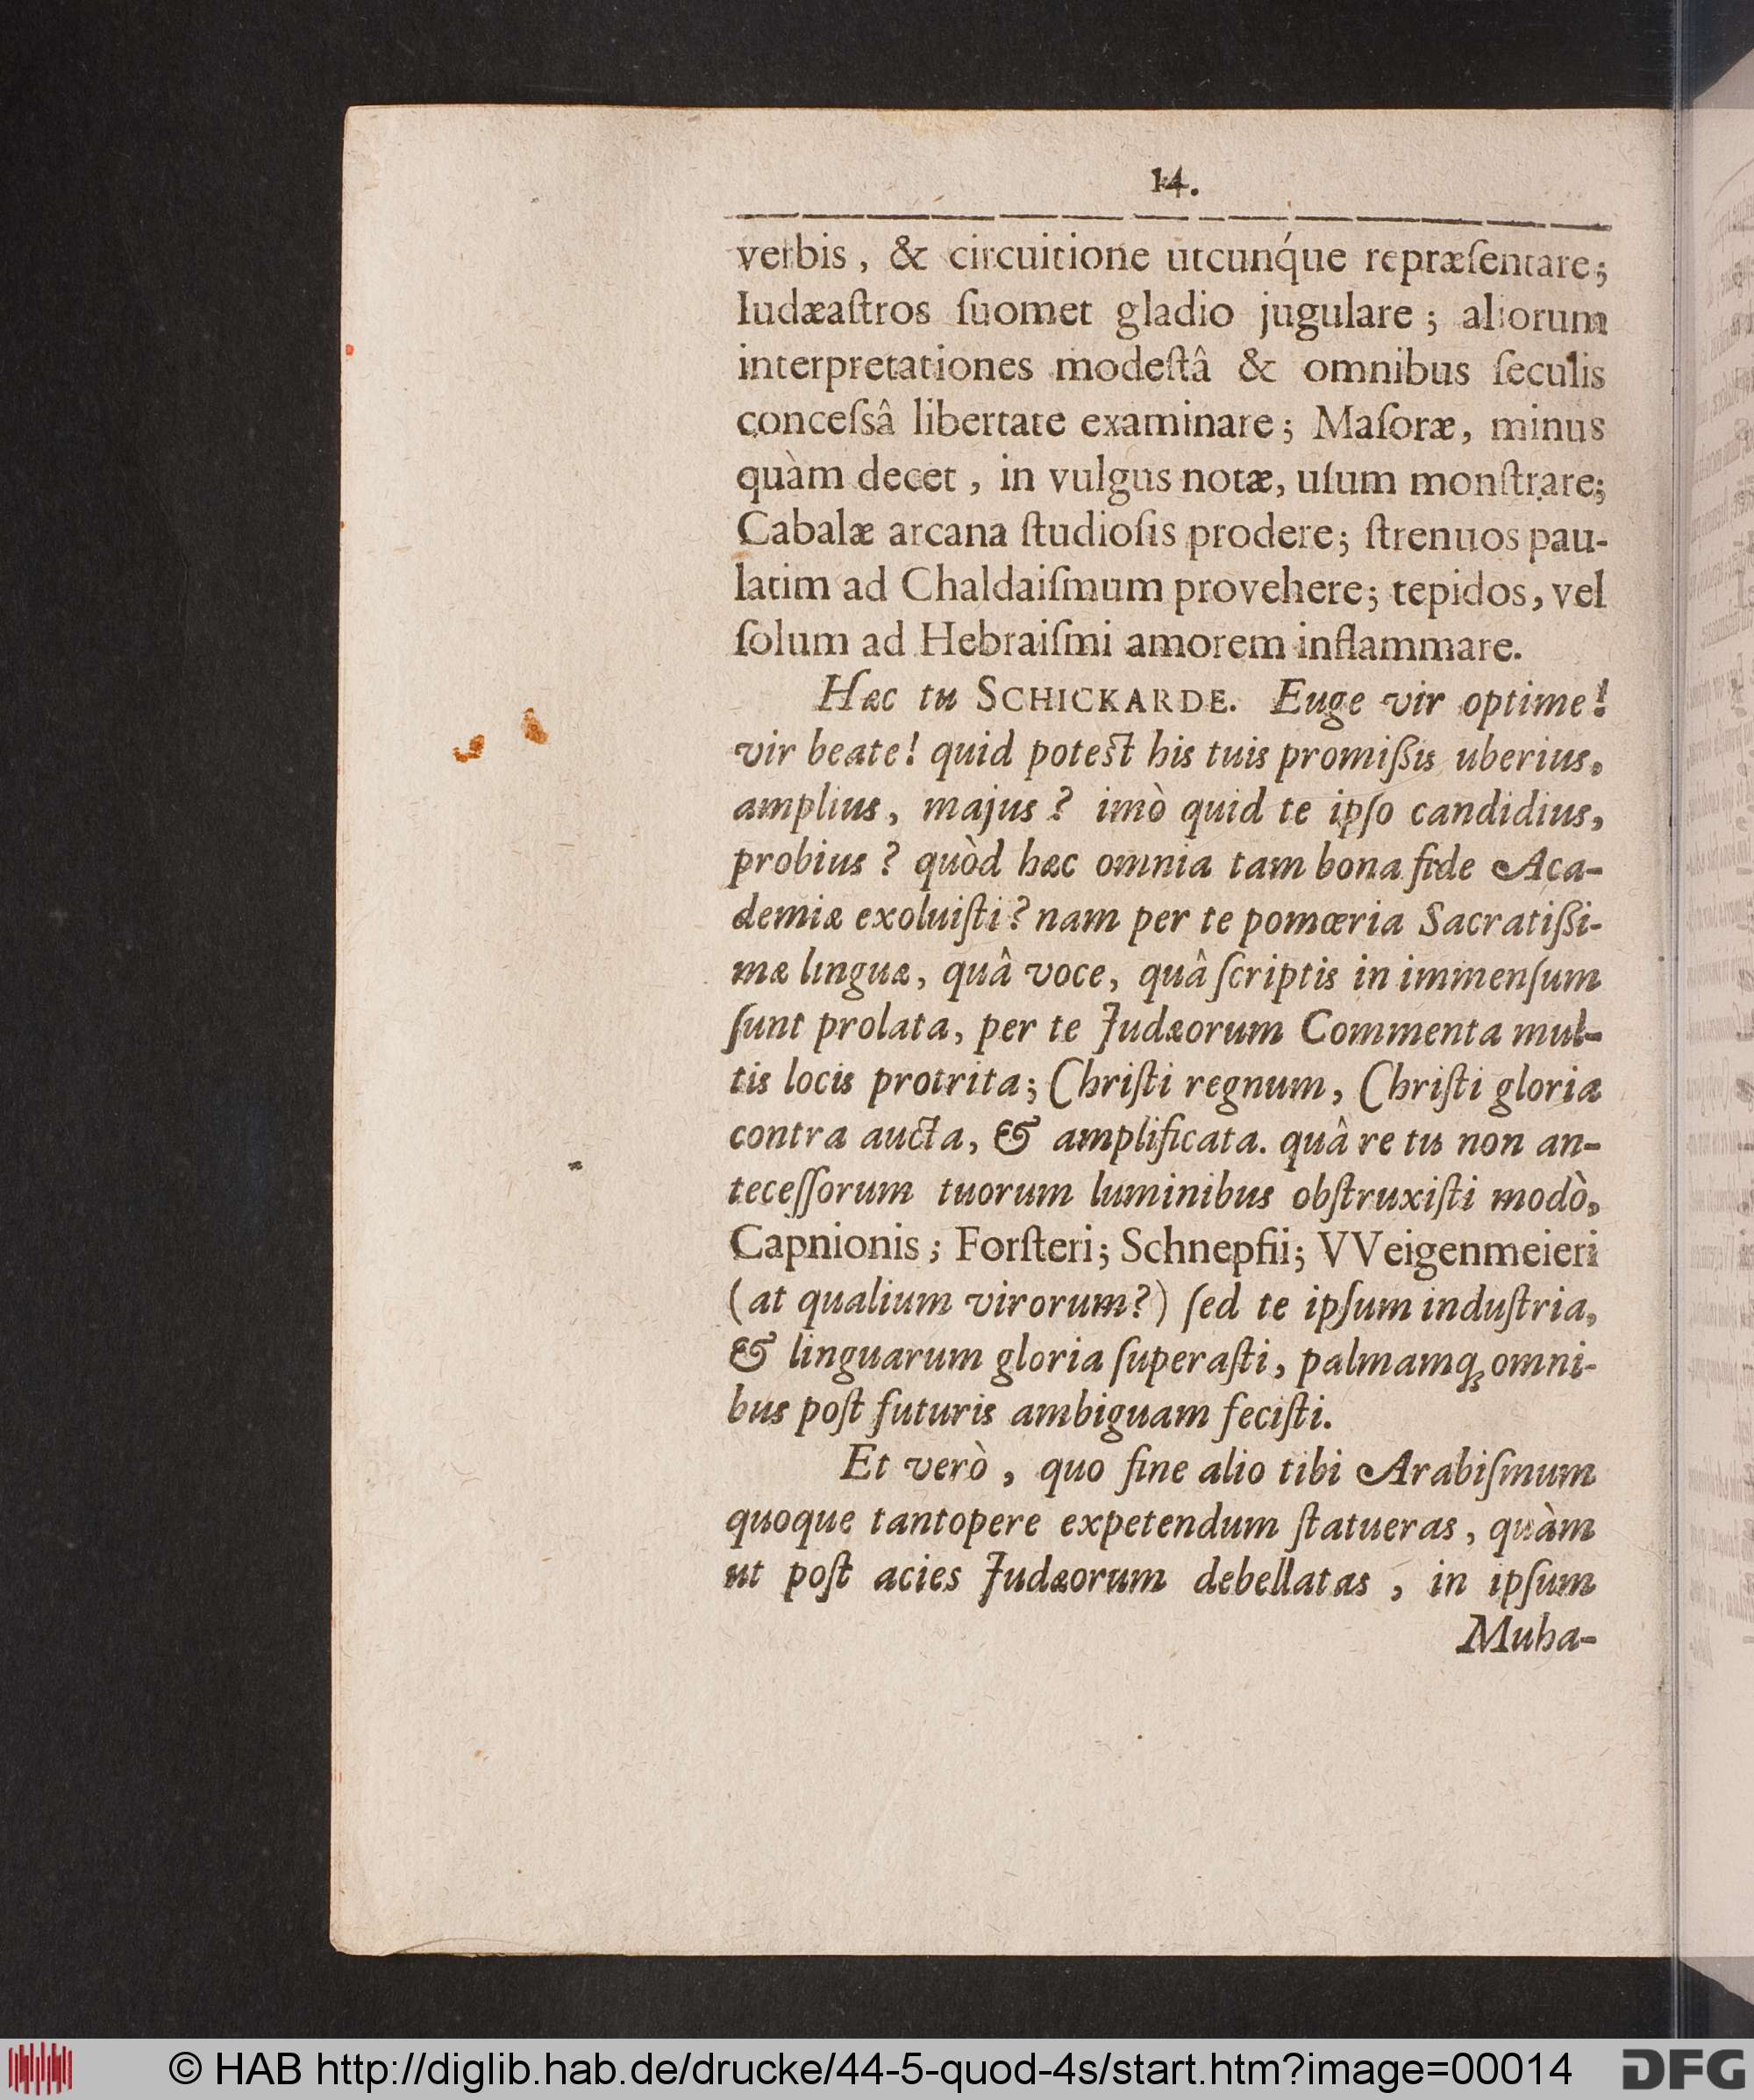 14.
verbis, & circuitione utcunq́ue repræſentare;
Iudæaſtros ſuomet gladio jugulare; aliorum
interpretationes modeſtâ & omnibus ſeculis
conceſsâ libertate examinare; Maſoræ, minus
quàm decet, in vulgus notæ, uſum monſtrare;
Cabalæ arcana ſtudioſis prodere; ſtrenuos pau-
latim ad Chaldaiſmum provehere; tepidos, vel
ſolum ad Hebraiſmi amorem inflammare.
Hæc tu SCHICKARDE. Euge vir optime!
vir beate! quid poteſt his tuis promiſsis uberius,
amplius, majus? imò quid te ipſo candidius,
probius? quòd hæc omnia tam bona fide Aca-
demiæ exoluiſti? nam per te pomœria Sacratiſsi-
mæ linguæ, quâ voce, quâ ſcriptis in immenſum
ſunt prolata, per te Judæorum Commenta mul-
tis locis protrita; Chriſti regnum, Chriſti gloria
contra aucta, & amplificata. quâ re tu non an-
teceſſorum tuorum luminibus obſtruxiſti modò,
Capnionis; Forſteri; Schnepfii; VVeigenmeieri
(at qualium virorum?) ſed te ipſum induſtria,
& linguarum gloria ſuperaſti, palmamq; omni-
bus poſt futuris ambiguam feciſti.
Et verò, quo fine alio tibi Arabiſmum
quoque tantopere expetendum ſtatueras, quàm
ut poſt acies Judæorum debellatas, in ipſum
Muha-
© HAB http://diglib.hab.de/drucke/44-5-quod-4s/start.htm?image=00014
DFG